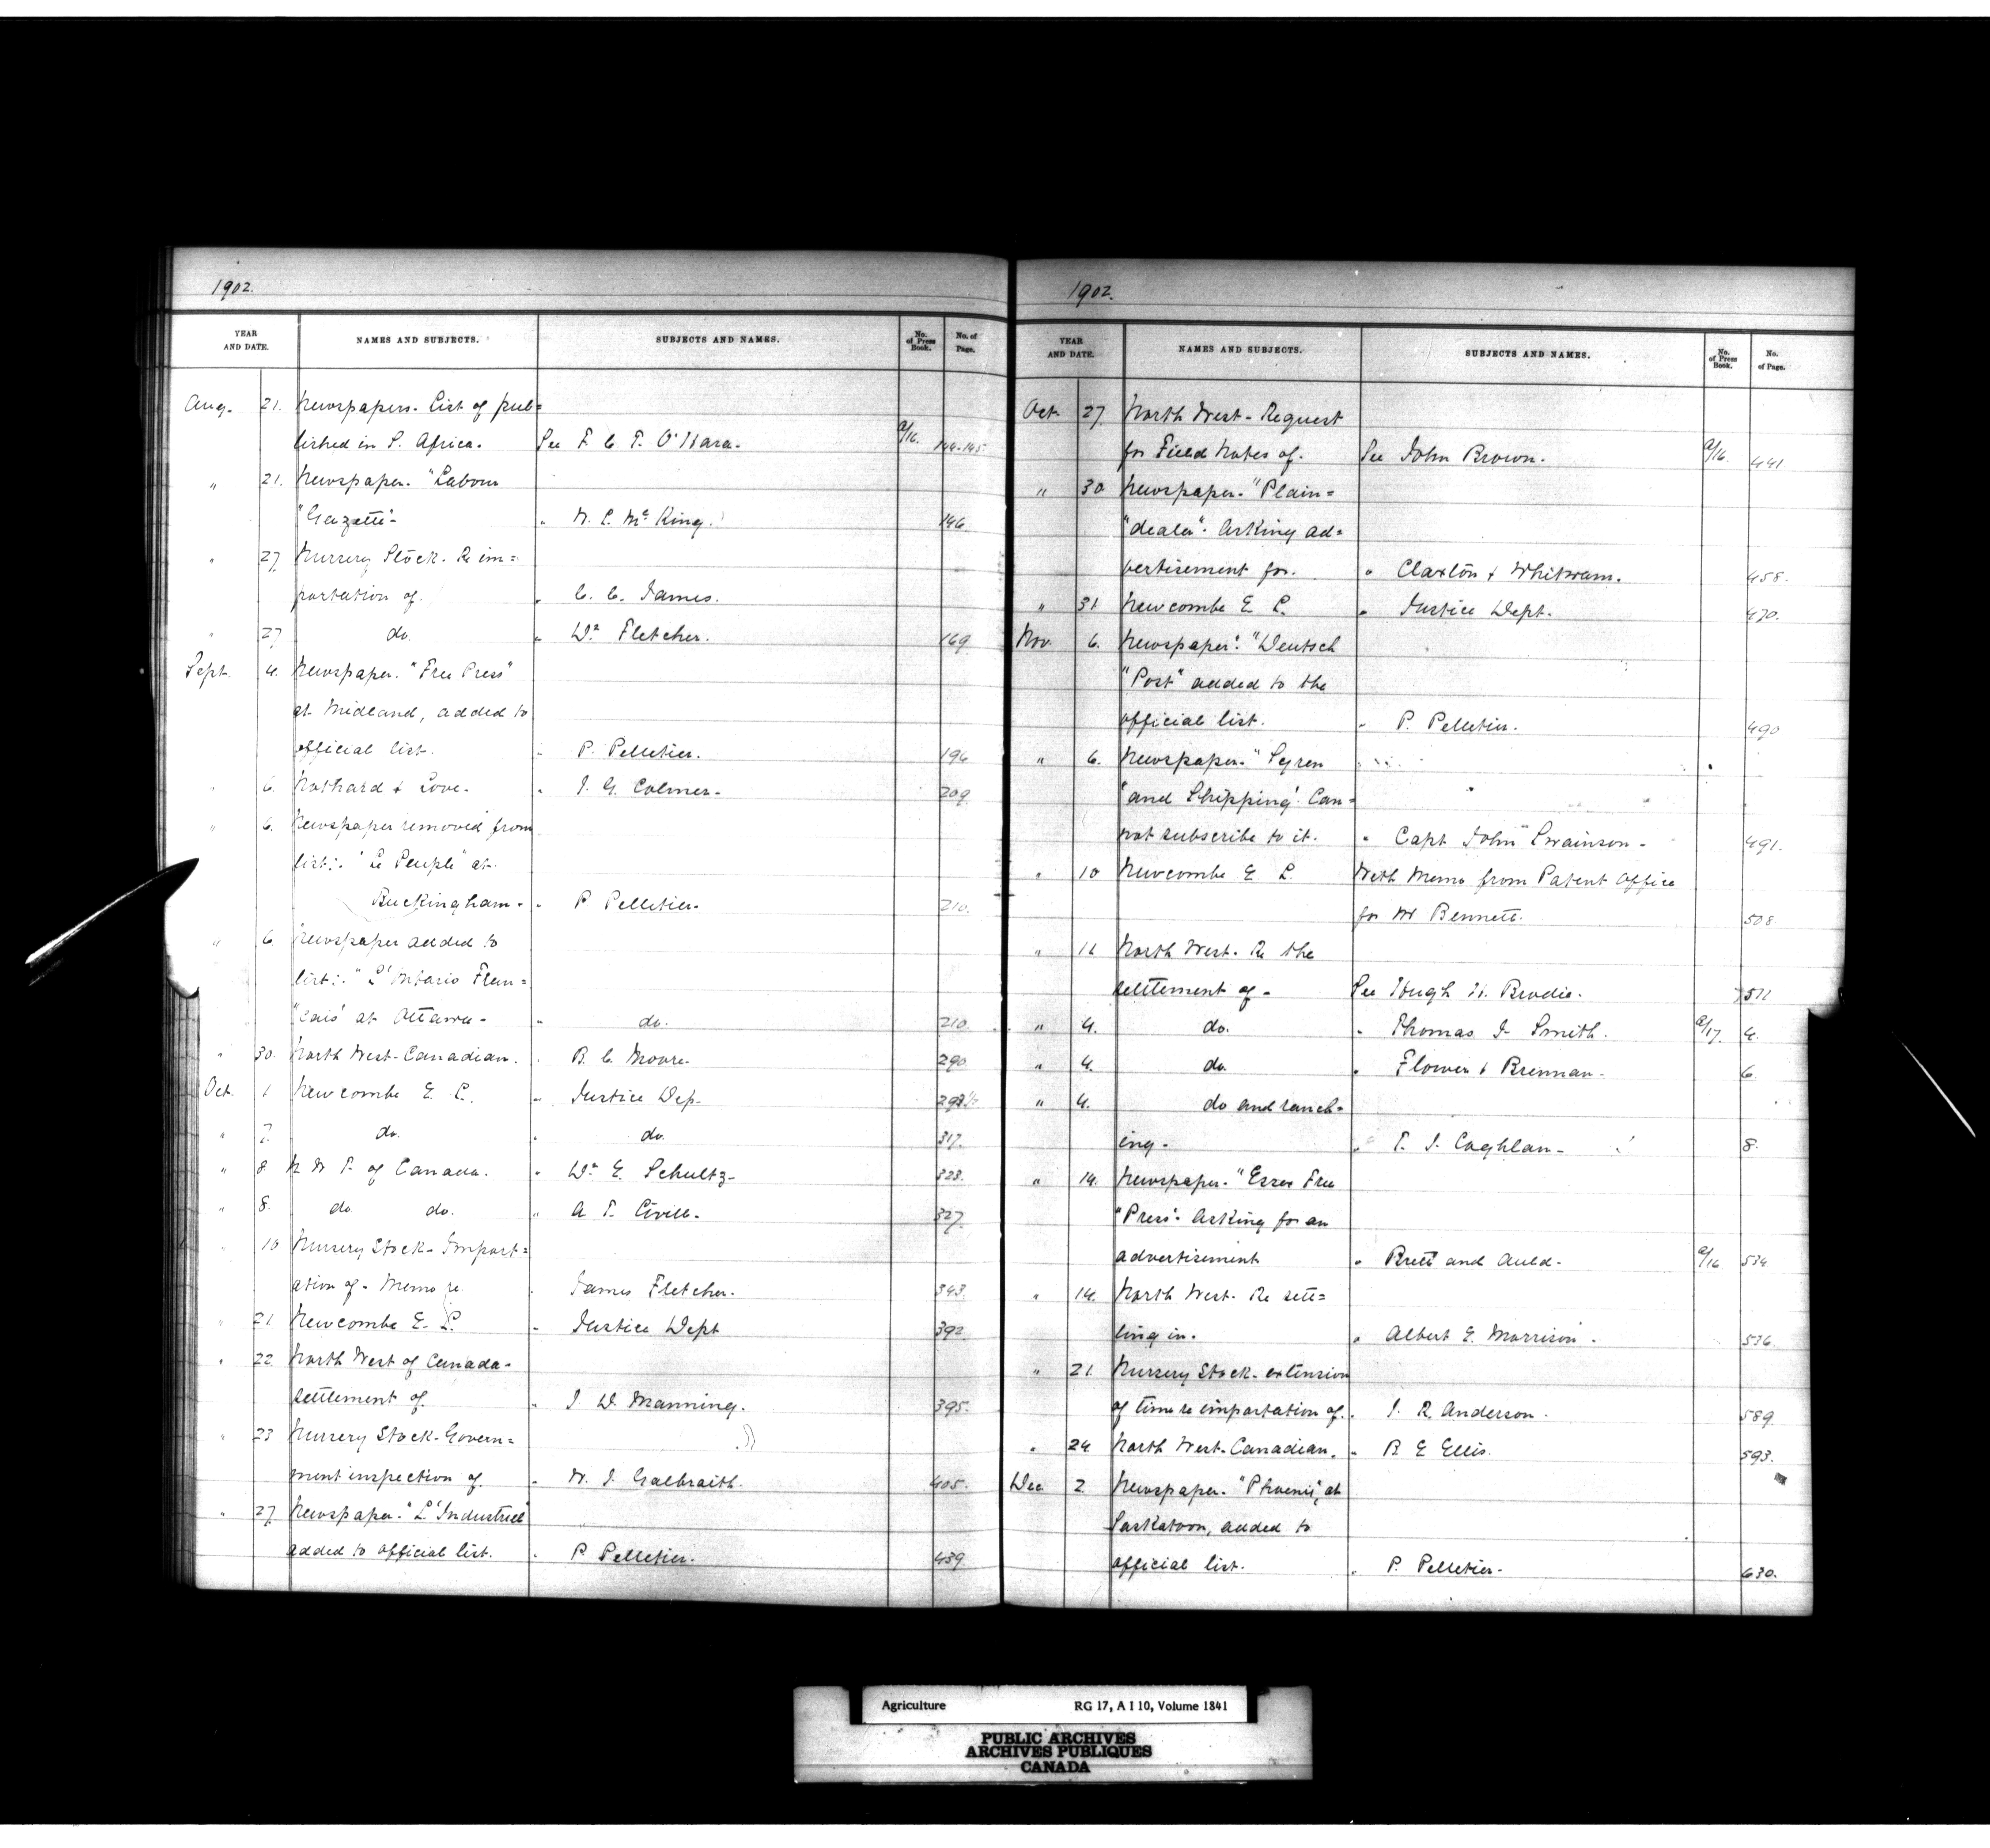 1902.
YEAR AND DATE. NAMES AND SUBJECTS. SUBJECTS AND NAMES. No. of Press Book. No. of Page.
Aug. 21. Newspapers. List of pub=
lished in S. Africa. See F. C. T. O'Hara. a/16. 144-145.
" 21. Newspaper. "Labour
"Gazette"- " W. L. Mc King. 146.
" 27 Nursery Stock. Re im=
portation of. " C. C. James.
" 27 do. " Dr Fletcher. 169.
Sept. 4. Newspaper. "Free Press"
at Midland, added to
official list. " P. Pelletier. 196
" 6. Nothard & Lowe. " J. G. Colmer. 209.
" 6. Newspaper removed from
list:. "Le Peuple" at
Buckingham. " P Pelletier. 210.
" 6. Newspaper added to
list:. "L'Ontario Fran=
"cais" at Ottawa- " do. 210.
" 30. North West-Canadian. " B. C. Moore. 290.
Oct. 1 Newcombe E. L. " Justice Dep.
" 7. do. " do. 317.
" 8 N W T. of Canada. " Dr E. Schultz- 323.
" 8. do do. " A T. 327.
" 10 Nursery Stock- Import=
ation of- Memo re. " James Fletcher. 343.
" 21 Newcombe E. L. " Justice Dept 392.
" 22 North West of Canada-
settlement of. " J D. Manning. 395.
" 23 Nursery Stock-Govern=
ment inspection of. " W. J. Galbraith. 405.
" 27 Newspaper. "L'Industriel"
added to official list. " P Pelletier. 439.
1902.
YEAR AND DATE. NAMES AND SUBJECTS. SUBJECTS AND NAMES. No. of Press Book. No. of Page.
Oct. 27. North West- Request
for Field Notes of. See John Brown. a/16. 441
" 30 Newspaper. "Plain=
"dealer". Asking ad=
vertisement for. " Claxton & Whitwam. 458.
" 31 Newcombe E. L. " Justice Dept. 470.
Nov. 6. Newspaper:. "Deutsch
"Post" added to the
official list. " P. Pelletier. 490
" 6. Newspaper. "Syren
"and Shipping". Can=
not subscribe to it. " Capt John Swainson- 491.
" 10 Newcombe E L. With Memo from Patent Office
for Mr Bennett. 508
" 11 North West. Re the
settlement of- See Hugh H. Brodie. 511
" 4. do. " Thomas J- Smith. a/17. 4.
" 4. do. " Flower & Brennan. 6
" 4. do and ranch=
ing- " T. J. Coghlan- 8.
" 14. Newspaper. "Essex Free
"Press". Asking for an
advertisement " Brett and Auld. a/16 534
" 14. North West. Re sett=
ling in. " Albert E. Morrison. 536.
" 21. Nursery Stock. extension
of time re importation of. " J. R. Anderson. 589.
" 24. North West-Canadian. " R E Ellis. 593.
Dec 2. Newspaper. "Phoenix", at
Saskatoon, added to
official list. " P. Pelletier. 630.
Agriculture RG 17, A I 10, Volume 1841
PUBLIC ARCHIVES
ARCHIVES PUBLIQUES
CANADA